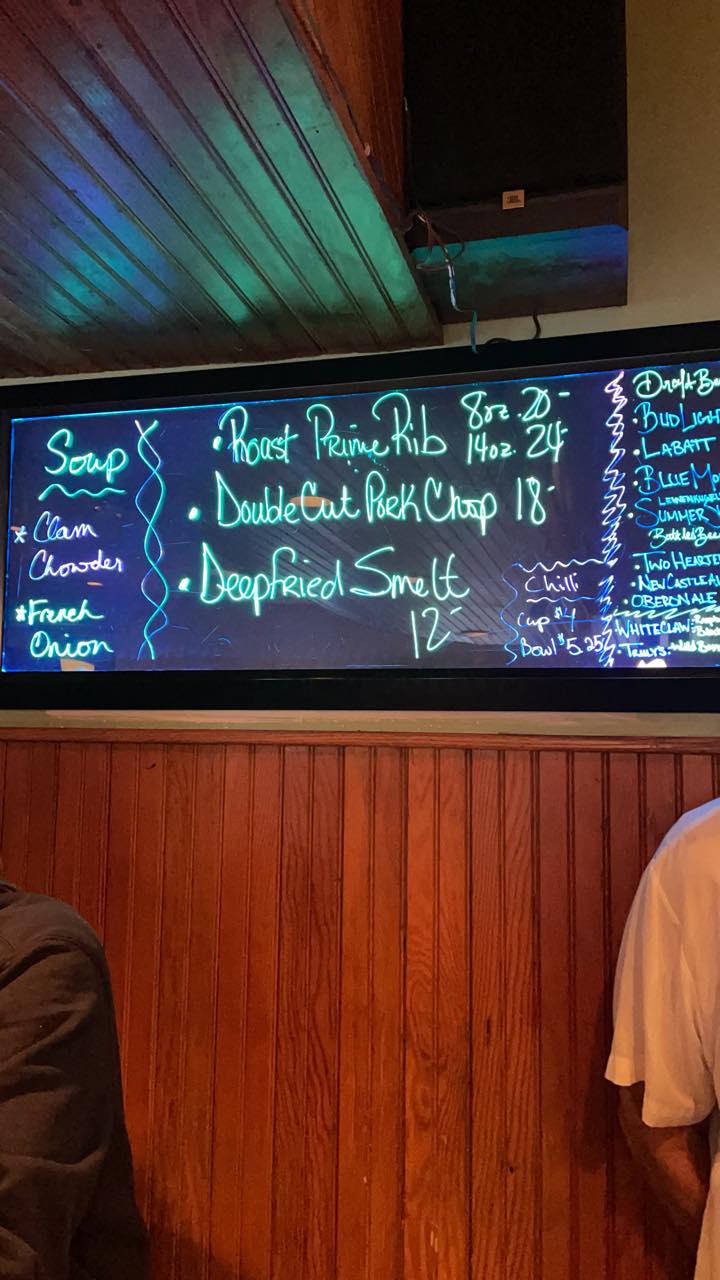 Soup
* Clam
Chowder
* French
Onion
• Roast Prime Rib 8oz. 20-
14oz. 24-
• Double Cut Pork Chop 18-
• Deepfried Smelt
12-
Chilli
Cup $4
Bowl $5.25
Draft Bee
• Bud Light
• Labatt
• Blue Mo
• Summer
Bottled Bee
• Two Hearte
• New Castle A
• Oberon Ale
• White Claw-
• Trulys-
JBL